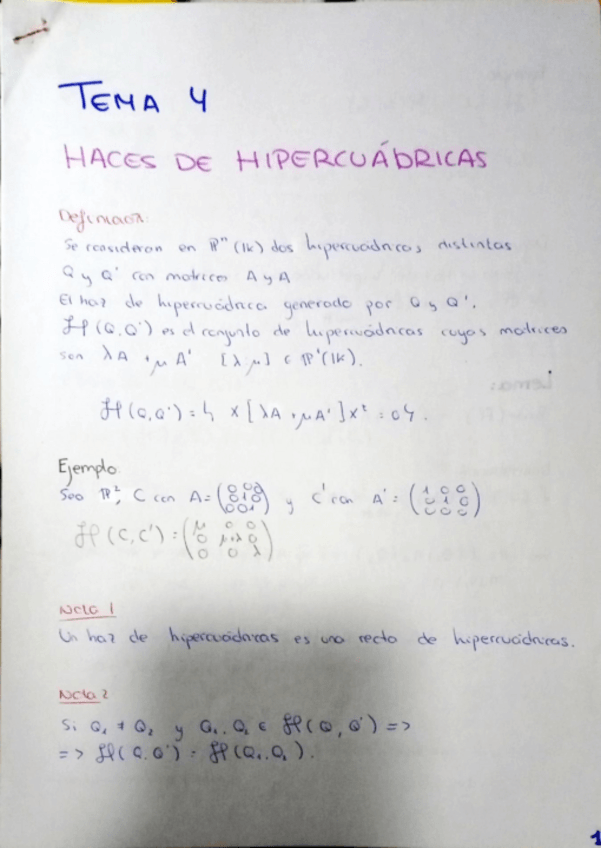 TEMA 4
HACES DE HIPERCUÁDRICAS
Definición:
Se consideran en ℙⁿ(𝕜) dos hipercuádricas distintas
Q y Q' con matrices A y A
El haz de hipercuádrica generado por Q y Q'.
ℋ(Q,Q') es el conjunto de hipercuádricas cuyas matrices
son λA + μA' [λ,μ] ∈ ℙ'(𝕜).
ℋ(Q,Q') = { X[λA + μA']Xᵗ = 0 }.
Ejemplo:
Sea ℙ², C con A = (0 0 0 / 0 1 0 / 0 0 1) y C' con A' = (1 0 0 / 0 1 0 / 0 0 0)
ℋ(C,C') = (μ 0 0 / 0 μ+λ 0 / 0 0 λ)
Nota 1
Un haz de hipercuádricas es una recta de hipercuádricas.
Nota 2
Si Q₁ ≠ Q₂ y Q₁, Q₂ ∈ ℋ(Q,Q') =>
=> ℋ(Q,Q') = ℋ(Q₁,Q₂).
Lema:
1